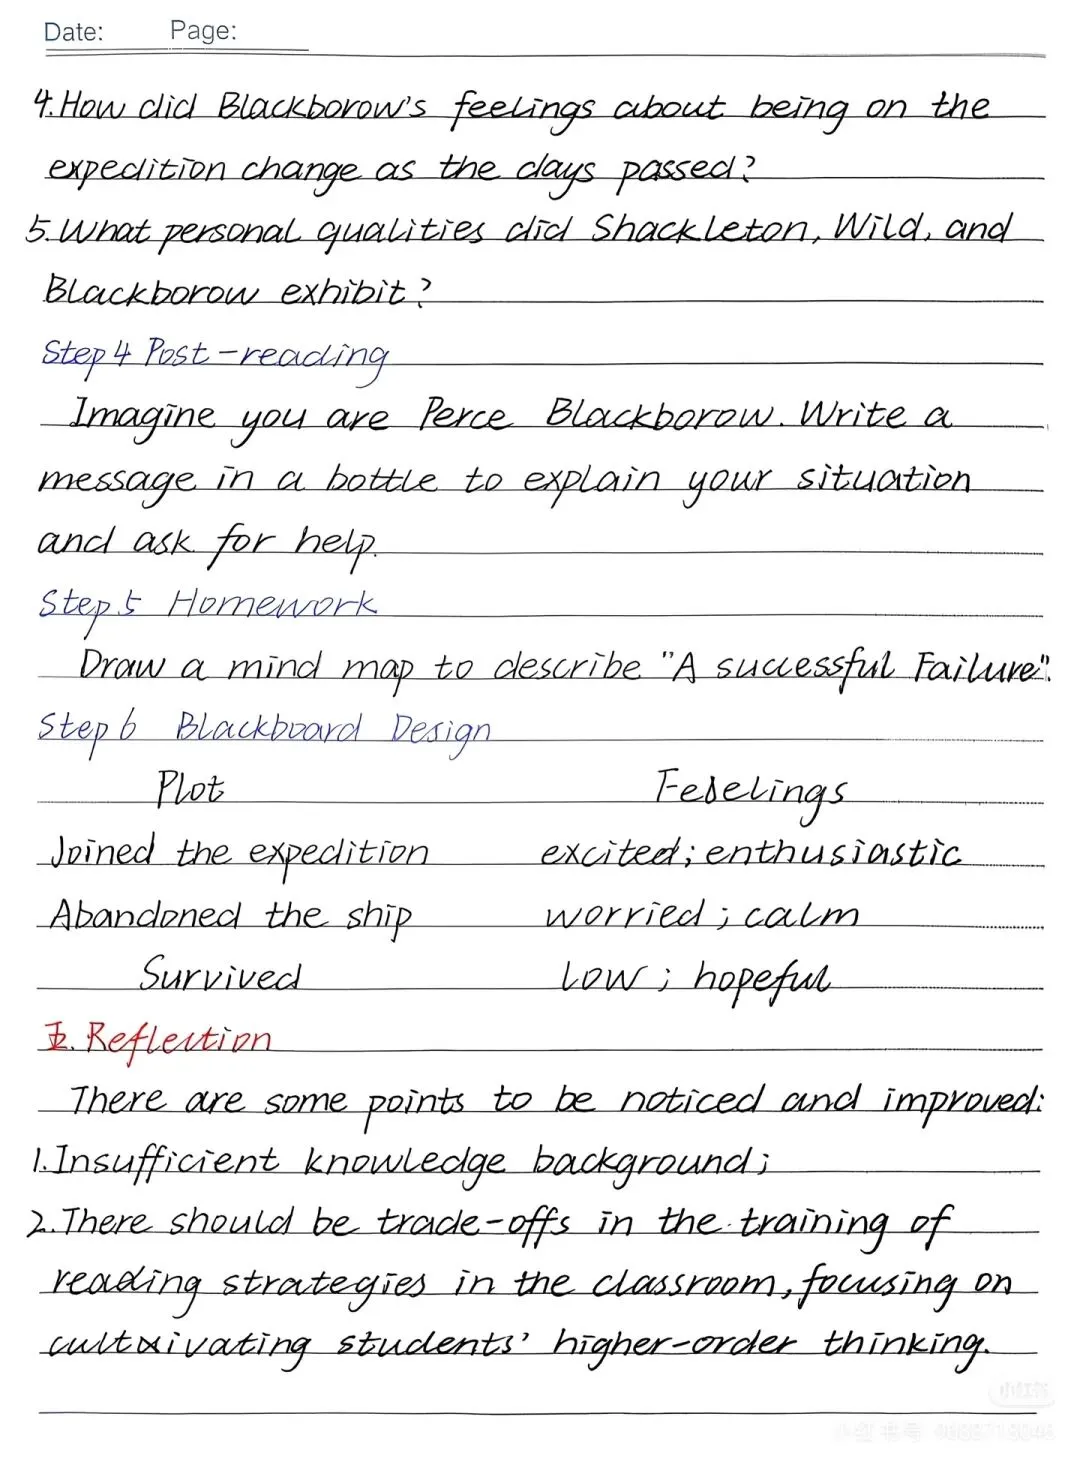 Date: Page:
4. How did Blackborow's feelings about being on the
expedition change as the days passed?
5. What personal qualities did Shackleton, Wild, and
Blackborow exhibit?
Step 4 Post-reading
Imagine you are Perce Blackborow. Write a
message in a bottle to explain your situation
and ask for help.
Step 5 Homework
Draw a mind map to describe "A successful Failure".
Step 6 Blackboard Design
Plot Feelings
Joined the expedition excited; enthusiastic
Abandoned the ship worried; calm
Survived low; hopeful
五. Reflection
There are some points to be noticed and improved:
1. Insufficient knowledge background;
2. There should be trade-offs in the training of
reading strategies in the classroom, focusing on
cultivating students' higher-order thinking.
小红书